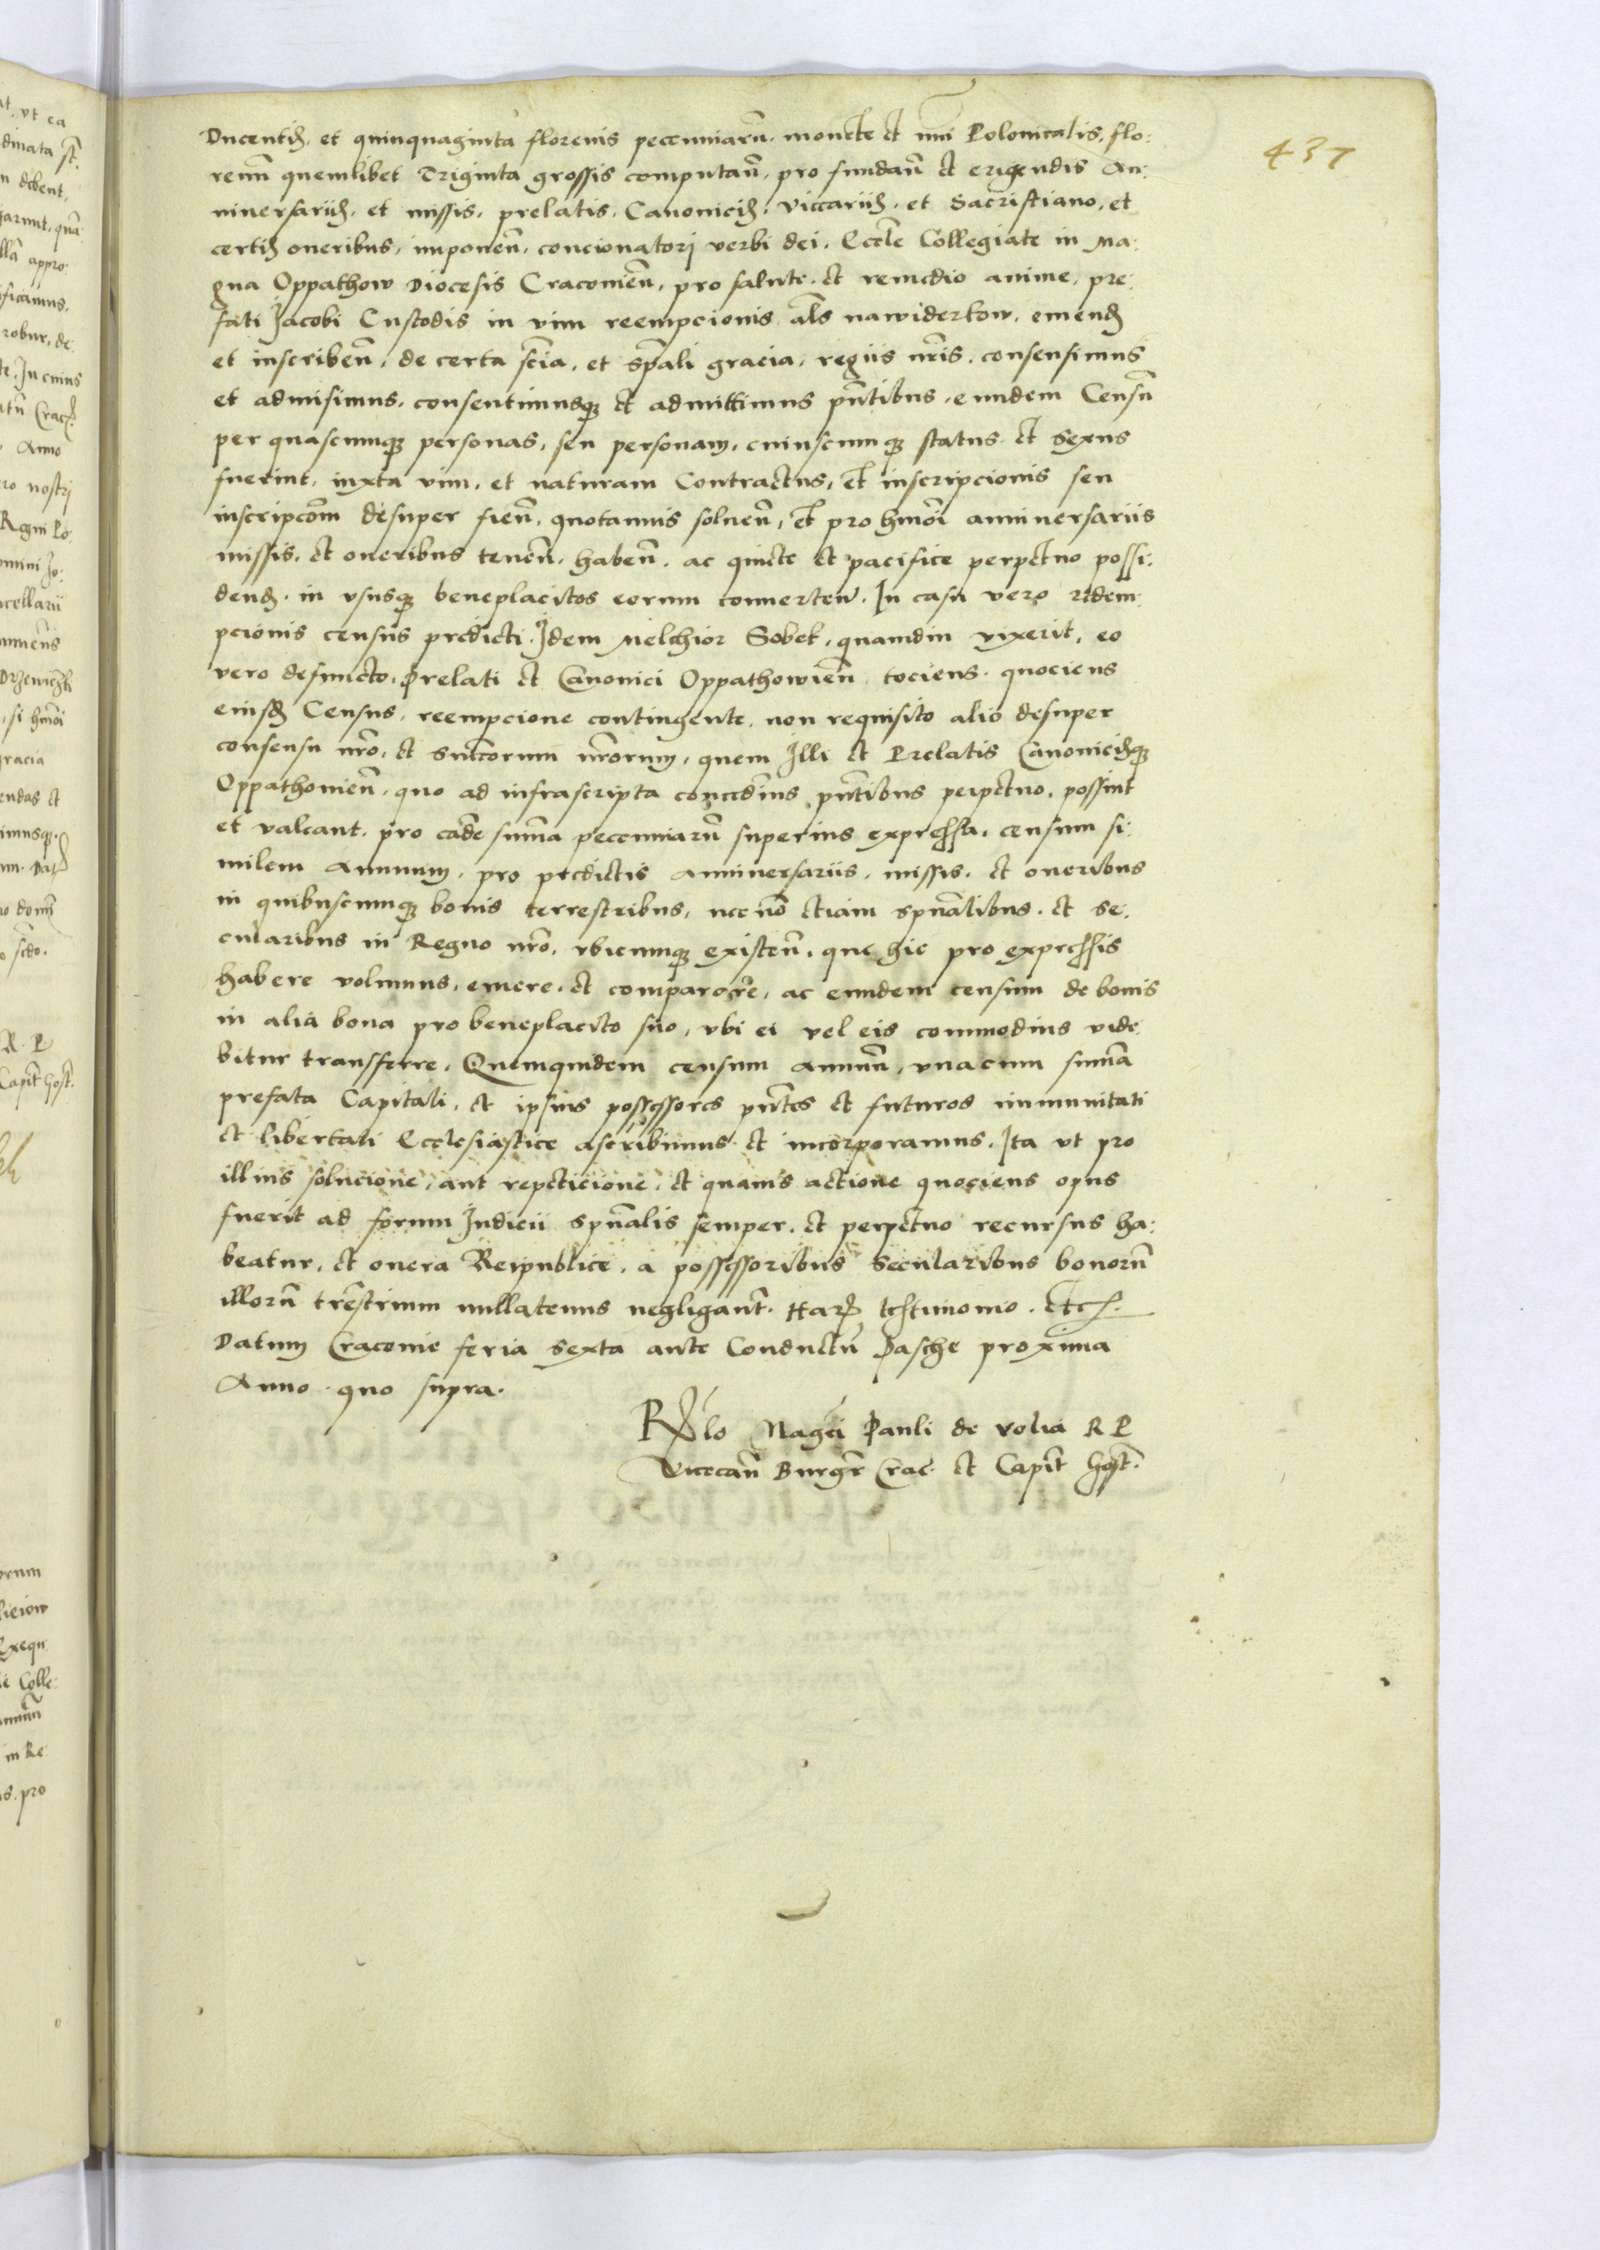 437
Ducentis. et quinquaginta florenis pecuniarū. monete et nūi Polonicalis, flo:
renum quemlibet Triginta grossis computan̄, pro fundan̄ et erigendis An:
niuersariis, et missis, prelatis, Canonicis, viccariis, et Sacristiano, et
certis oneribus, imponen̄, concionatori verbi dei, Eccl̄e Collegiate in Ma:
gna Oppathow Diocesis Cracouien̄, pro salute. et remedio anime, pre:
fati Jacobi Custodis in vim reempcionis al̄s nawiderkow, emend
et inscriben̄, de certa scīa, et sp̄ali gracia, regiis nr̄is, consensimus
et admisimus, consentimusq3 et admittimus pn̄tibus, eundem Censū
per quascumq3 personas, seu personam, cuiuscumq3 status et sexus
fuerint, iuxta vim, et naturam Contractus, et inscripcionis seu
inscripcōm desuper fien̄, quotannis soluen̄, et pro hmōi anniuersariis
missis, et oneribus tenen̄, haben̄, ac quiete et pacifice perpetuo possi:
dend. in vsusq3 beneplacitos eorum conuerten̄. In casu vero redem:
pcionis census predicti. Idem Melchior Sobek, quamdiu vixerit, eo
vero defuncto, Prelati et Canonici Oppathowien̄ tociens quociens
eiusd Census, reempcione contingente, non requisito alio desuper
consensu nr̄o, et succorum nr̄orum, quem Illi et Prelatis Canonicisq3
Oppathouien̄, quo ad infrascripta concedimus pn̄tibus perpetuo, possint
et valeant, pro eadē summa pecuniarū superius expressa, censum si:
milem Annuum, pro predictis anniuersariis, missis, et oneribus
in quibuscumq3 bonis terrestribus, nec nō etiam spūalibus, et se:
cularibus in Regno nr̄o, vbicumq3 existen̄, que hic pro expressis
habere volumus, emere, et comparare, ac eundem censum de bonis
in alia bona pro beneplacito suo, vbi ei vel eis commodius vide:
bitur transferre, Quemquidem censum annuū, vnacum summa
prefata Capitali, et ipsius possessores pn̄tes et futuros immunitati
et libertati Ecclesiastice ascribimus et incorporamus, Ita vt pro
illius solucione, aut repeticione, et quauis actione quociens opus
fuerit ad forum Judicii spūalis semper, et perpetuo recursus ha:
beatur, et onera Reipublice, a possessoribus secularibus bonorū
illorū trēstrium nullatenus negligant̄. Har testimonio. etc.
Datum Cracouie feria sexta ante Conductū Pasche proxima
Anno quo supra.
Rlo Magci Pauli de volia R P
Vicecan̄ Burgr̄ Crac. et Capit̄ Gost̄.